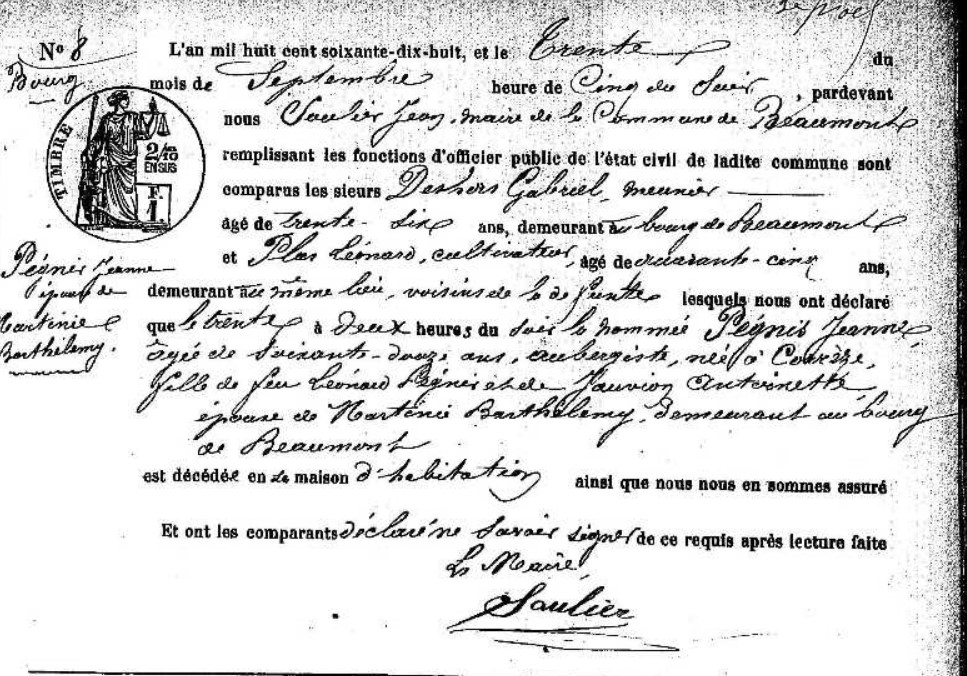 N° 8
Bourg
TIMBRE
2/10
EN SUS
F.
1.
Pégnis Jeanne
épouse de
Martinie
Barthélemy.
L'an mil huit cent soixante-dix-huit, et le Trente du
mois de Septembre heure de Cinq du Soir, pardevant
nous Saulier Jean, maire de la Commune de Beaumont
remplissant les fonctions d'officier public de l'état civil de ladite commune sont
comparus les sieurs Deshors Gabriel, meunier
âgé de trente-six ans, demeurant au bourg de Beaumont
et Plas Léonard, cultivateur, âgé de quarante-cinq ans,
demeurant au même lieu, voisins de la défunte lesquels nous ont déclaré
que le trente à deux heures du soir la nommée Pégnis Jeanne,
âgée de soixante-douze ans, aubergiste, née à Corrèze,
fille de feu Léonard Pégnis et de Jauvion Antoinette,
épouse de Martinie Barthélemy, demeurant au bourg
de Beaumont
est décédée en sa maison d'habitation ainsi que nous nous en sommes assuré
Et ont les comparants déclaré ne savoir signer de ce requis après lecture faite
Le Maire
Saulier